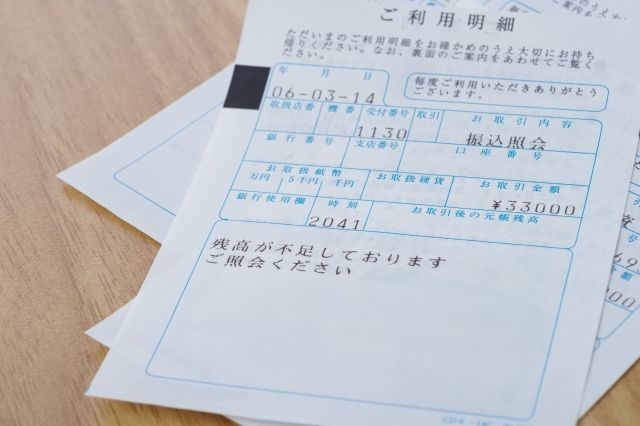 ご利用明細
ただいまのご利用明細をお確かめのうえ大切にお持ち
帰りください。なお、裏面のご案内をあわせてご覧く
ださい。
年 月 日
06-03-14
毎度ご利用いただきありがとう
ございます。
取扱店番 機番 受付番号 取引 お取引内容
1130 振込照会
銀行番号 支店番号 口座番号
お取扱紙幣 お取扱硬貨 お取引金額
万円 5千円 千円 ¥33000
銀行使用欄 時刻 お取引後の元帳残高
2041
残高が不足しております
ご照会ください